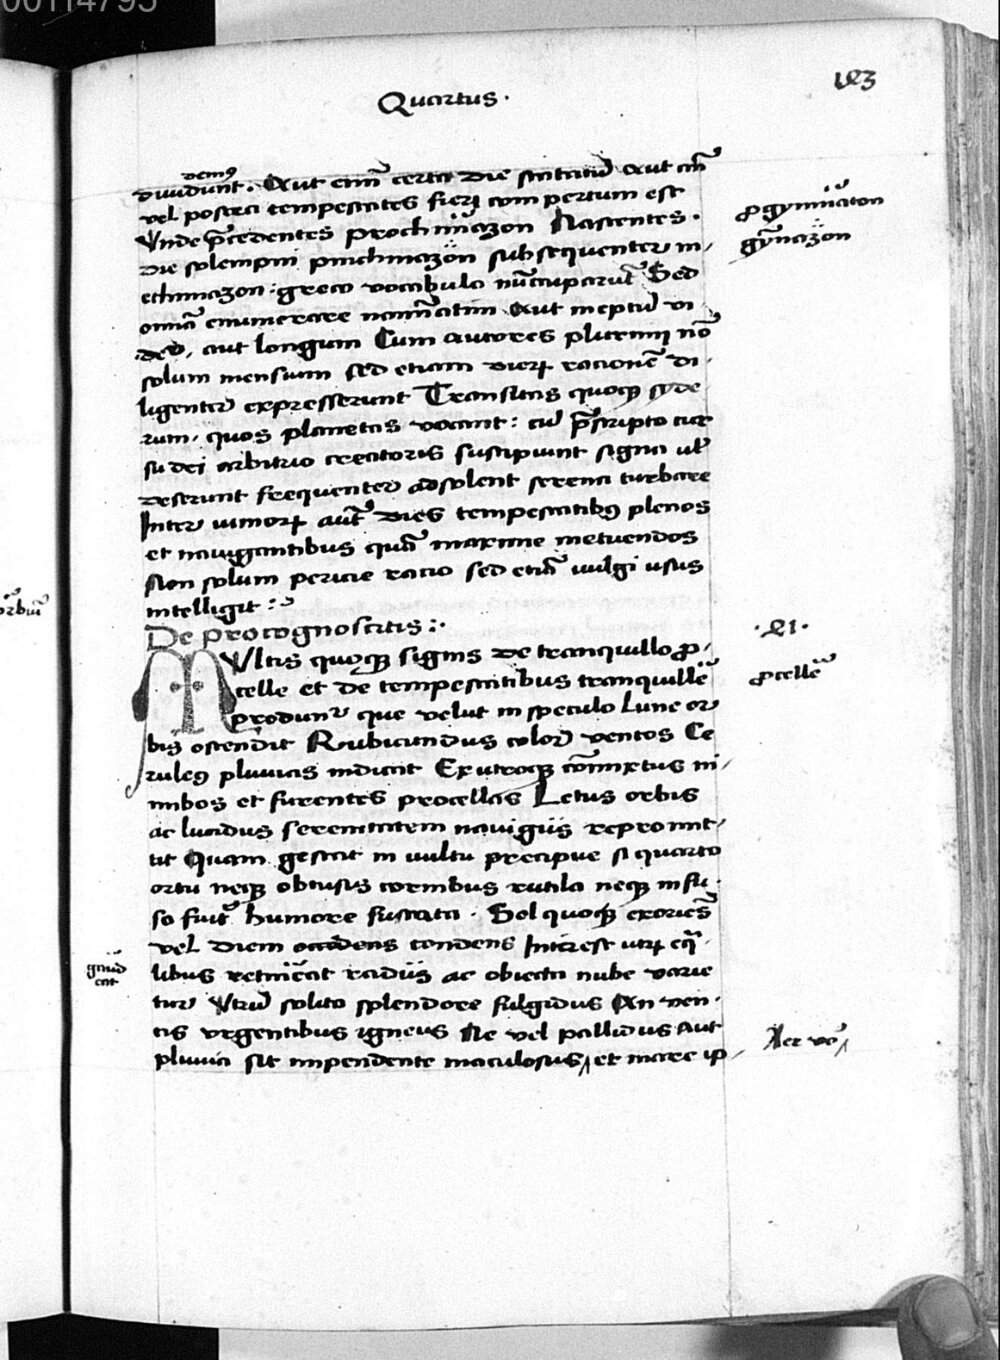 00114795
Quartus .
demꝰ
diuidunt . Aut enī certa die statutū Aut an̄
vel postea tempestates fieri compertum est
Vnde p̄cedentes prochimazon Nascentes .
die solempni pinchimazon subsequenter m
ethimazon : greco vocabulo nūcuparūt Sed
omīa enumerare nominatim Aut ineptū vi
deo , aut longum Cum autores plurimi nō
solum mensium sed etiam dieꝝ racionē di
ligenter expresserunt Transitus quoqꝫ syde
rum , quos planetas vocant : cū p̄scripto cur
su dei arbitrio creatoris suscipiunt signa uł
deserunt frequenter adsolent serena turbare
Inter vimoꝝ aut̄ dies tempestatibꝰ plenos
et nauigantibus quā maxime metuendos
Non solum pericie racio sed etiā uulgi usus
intelligit :
De procognoscitis :
Multis quoqꝫ signis de tranquillo ꝓ
celle et de tempestatibus tranquille
produntur que velut in speculo Lune or
bis ostendit Rubicundus color ventos Ce
ruleꝰ pluuias indicat Ex utroqꝫ cōmixtus ni
mbos et furentes procellas Letus orbis
ac lucidus serenitatem nauigiis repromit
tit Quam gestat in uultu precipue si quarto
ortu neqꝫ obtusis cornibus rutila neqꝫ infu
so fuit humore fuscata . Sol quoqꝫ exoriēs
vel diem occidens condens Interest utꝝ eq̄
libus retineat radiis ac obiecta nube varie
tur Vtrū solito splendore fulgidus An ven
tis vrgentibus igneus Ne vel pallidus aut
pluuia sit impendente maculosus et mare ip
ꝓgymnaton
gȳnazon
ꝓcellē
Aer vō